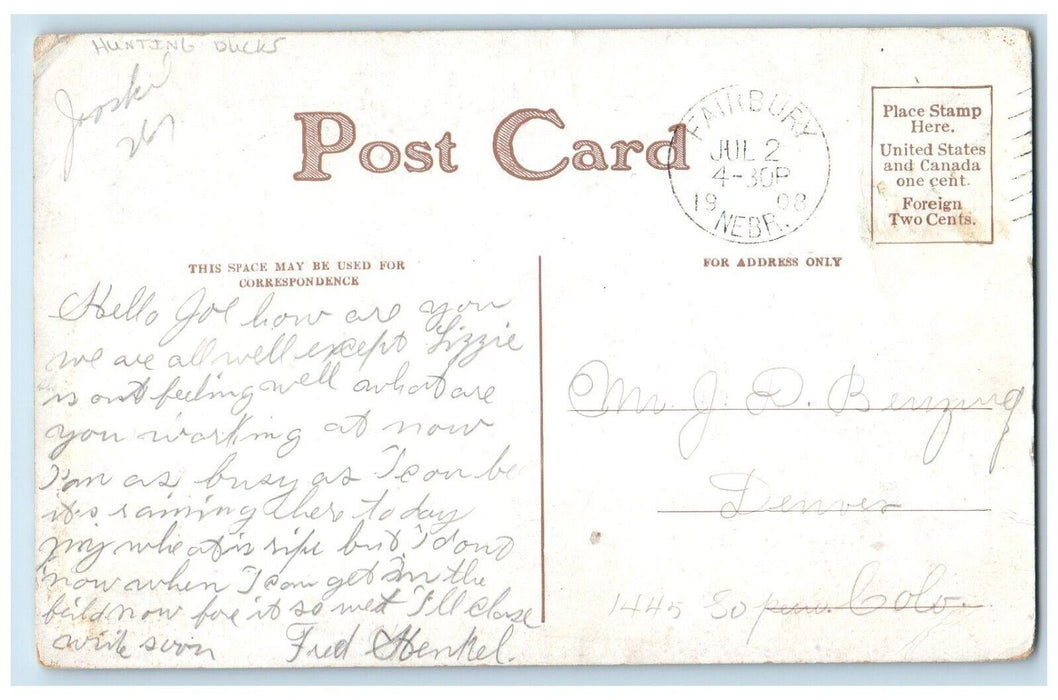 HUNTING DUCKS
267
Post Card
FAIRBURY
JUL 2
4-30P
1908
NEBR.
Place Stamp
Here.
United States
and Canada
one cent.
Foreign
Two Cents.
THIS SPACE MAY BE USED FOR
CORRESPONDENCE
FOR ADDRESS ONLY
Hello Joe how are you
we are all well except Lizzie
is ont feeling well what are
you working at now
I'am as busy as I can be
it's raining here to day
my wheat is ripe but I dont
now when I can get in the
feild now fore it so wet I'll close
write soon Fred Henkel.
Mr. J. D. Benzing
Denver
1445 So Colo.